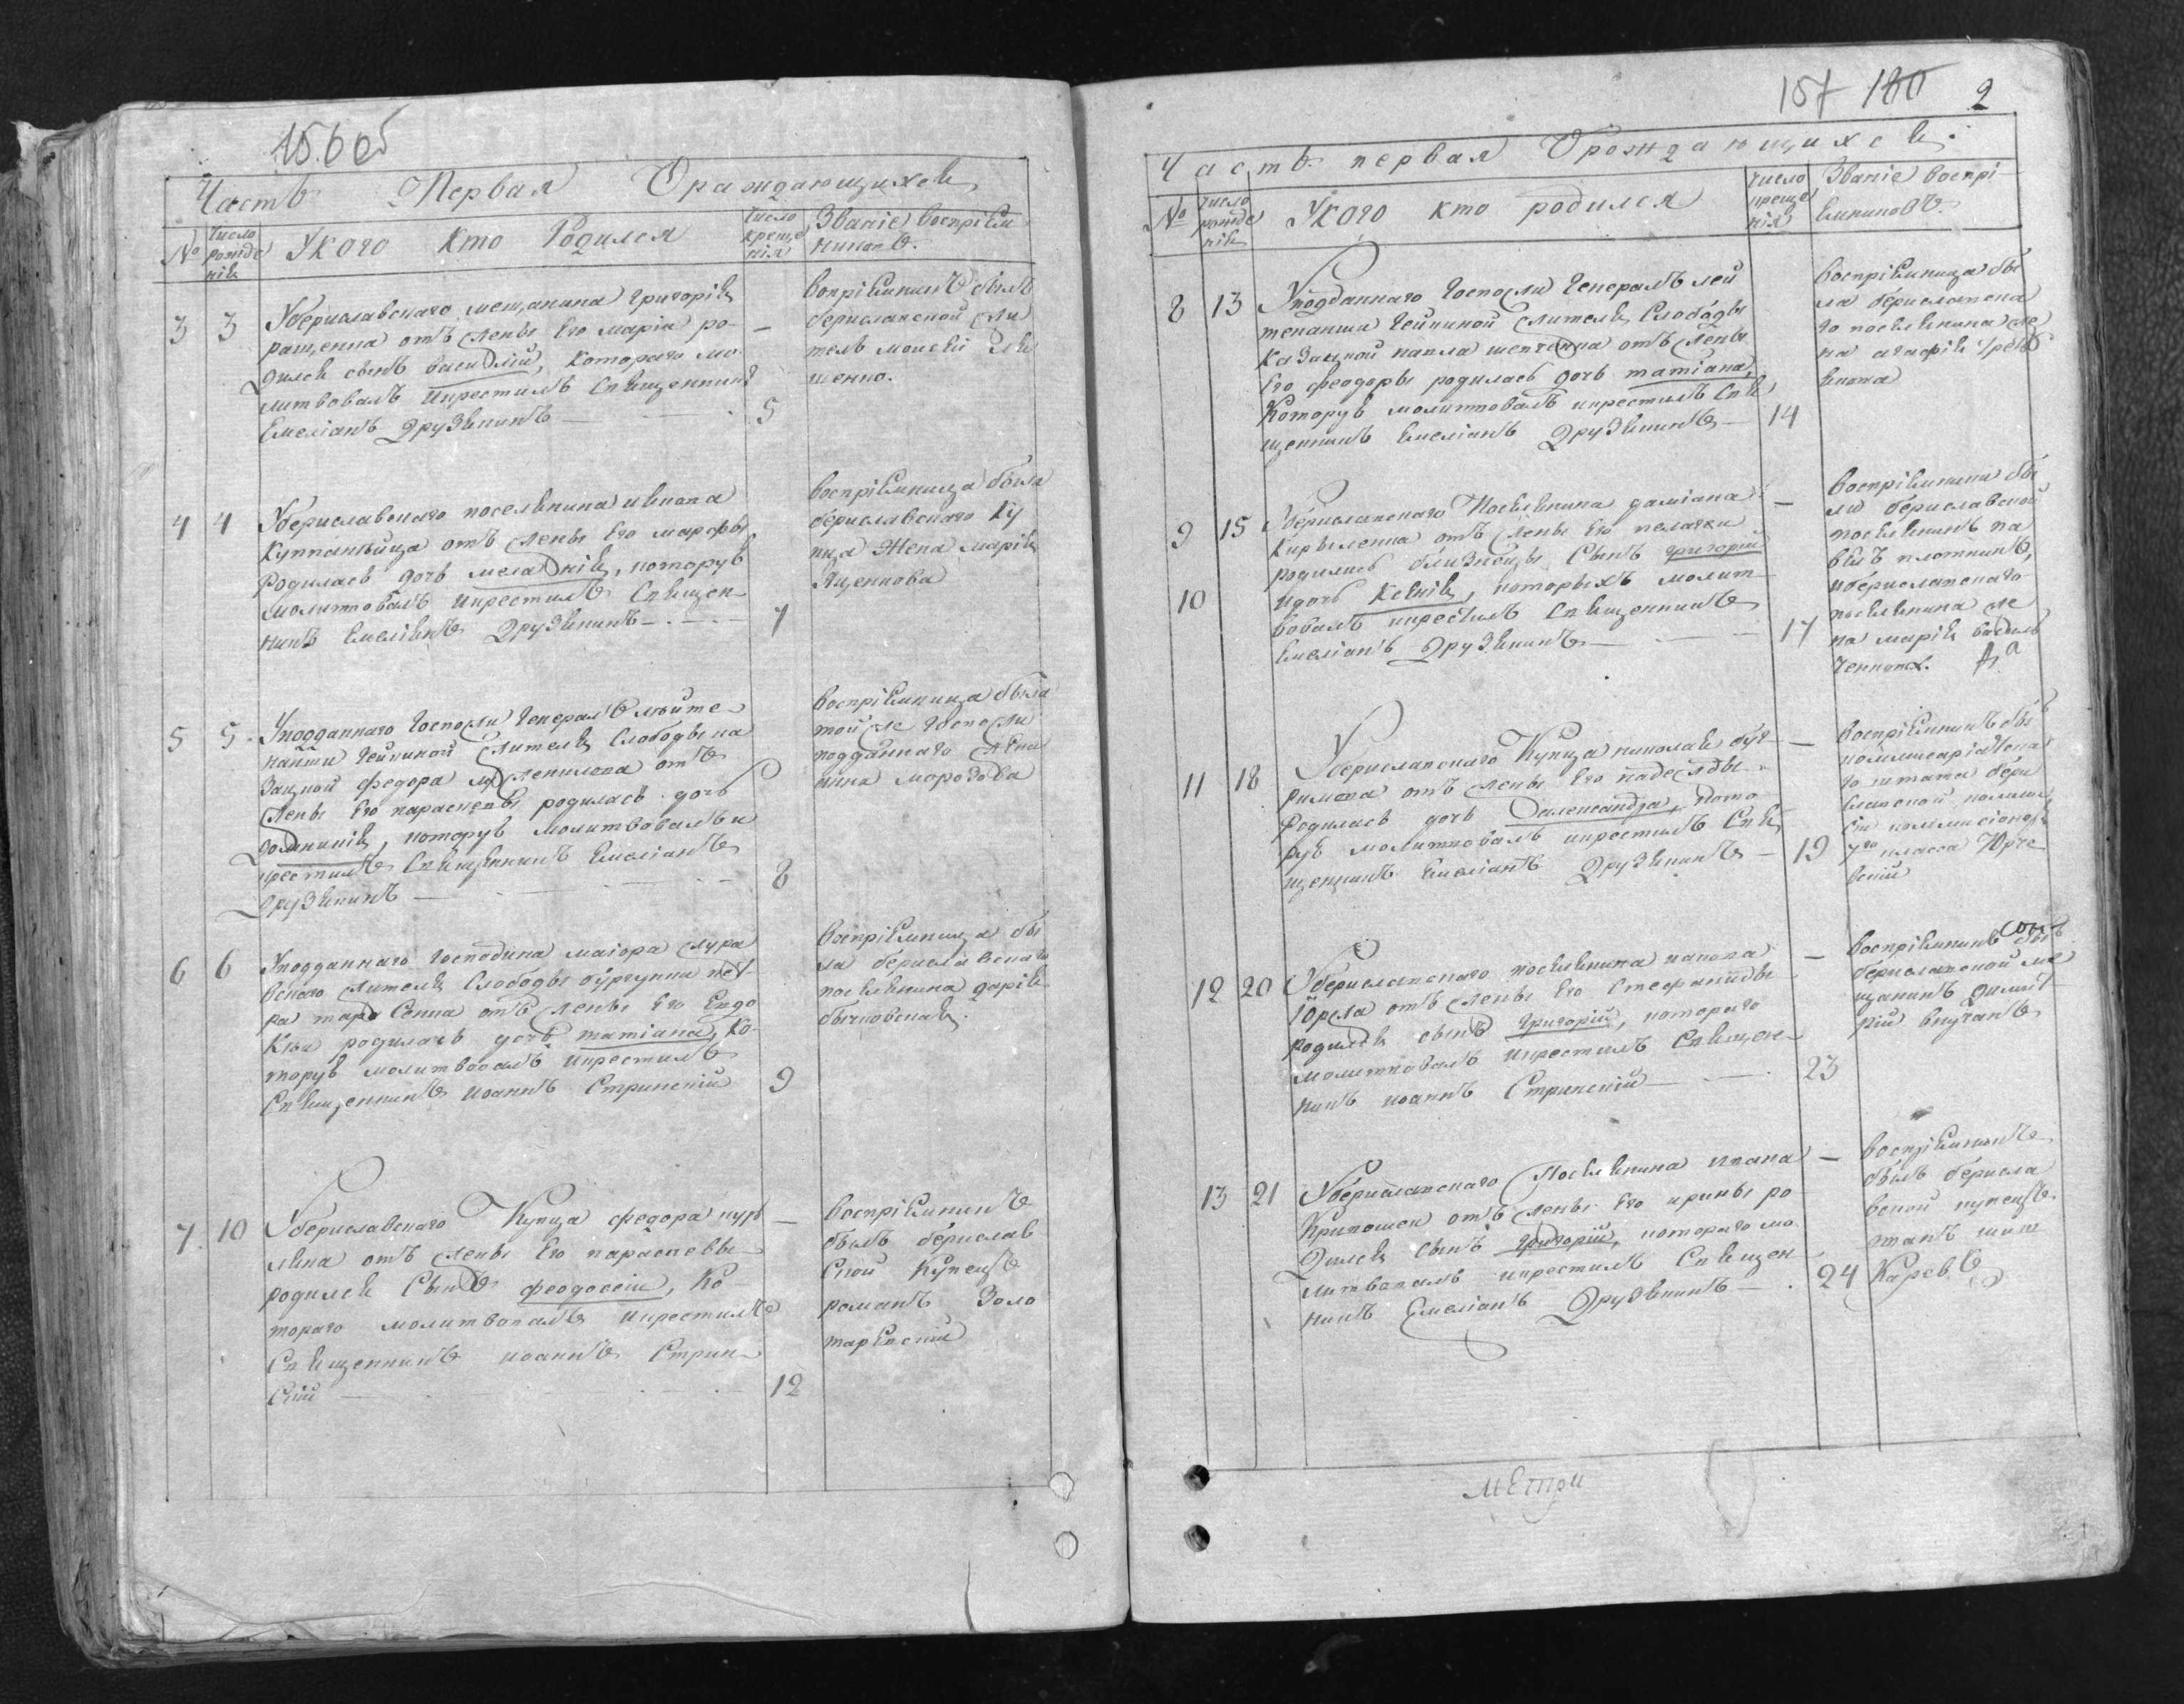 156 об
Часть Первая О раждающихся
№ число рожде нія У кого кто Родился число креще нія Званіе воспріем никовъ.
3 3 У бериславскаго мещанина григорія
ращенка отъ жены его маріи ро-
дился сынъ василій, котораго мо-
литвовалъ икрестилъ Священникъ
Емеліанъ Друзякинъ 5
воспріемникъ былъ
бериславской жи
тель моисей
шенко.
4 4 У бериславскаго поселянина
отъ жены его марфы
родилась дочь меланія, которую
молитвовалъ икрестилъ Священ-
никъ Емеліянъ Друзякинъ 7
воспріемница была
бериславскаго ку
пца жена марія
Яценкова
5 5 Уподданнаго госпожи генералъ лейте-
нанши жителя слободы ка
зацкой федора отъ
жены его парасковіи родилась дочь
домникія, которую молитвовалъ и
крестилъ Священникъ Емеліанъ
Друзякинъ 8
воспріемница была
той же госпожи
подданнаго жена
морозова
6 6 Уподданнаго господина маіора
вскаго жителя слободы бургунки пет-
ра отъ жены его Евдо
кіи родилась дочь татіана, ко-
торую молитвовалъ икрестилъ
Священникъ иоаннъ Стринскій 9
воспріемница бы
ла бериславскаго
поселянина дарія
7 10 У бериславскаго Купца федора
отъ жены его парасковіи
родился Сынъ феодосій, Ко-
тораго молитвовалъ икрестилъ
Священникъ иоаннъ Стрин-
скій 12
воспріемникъ
былъ берислав
ской купецъ
романъ Золо
таревскій
157 180 2
Часть первая О рождающихся.
№ число рожде нія У кого кто родился число креще нія Званіе воспрі емниковъ.
8 13 Уподданнаго госпожи генералъ лей
тенанши жителя Слободы
Казацкой павла шевченка отъ жены
его феодоры родилась дочь татіана,
которую молитвовалъ икрестилъ Свя
щенникъ Емеліанъ Друзякинъ 14
воспріемница бы
ла бериславска
го поселянина же
на агафія
9 15 Убериславскаго Поселянина даміана
кириленка отъ жены его пелагеи
родились близнецы Сынъ григорій
10 идочь Ксенія, которыхъ молит
вовалъ икрестилъ Священникъ
Емеліанъ Друзякинъ 17
воспріемники бы
ли бериславской
поселянинъ па
велъ плотникъ,
ибериславскаго
поселянина же
на марія василь
ченкова.
11 18 У бериславскаго Купца николая
отъ жены его надежды
родилась дочь александра, кото
рую молитвовалъ икрестилъ Свя
щенникъ Емеліанъ Друзякинъ 19
воспріемникъ бы
го штата бери
славской
7го класса Юрье
вскій
12 20 Убериславскаго поселянина
отъ жены его Стефаниды
родился сынъ григорій, котораго
молитвовалъ икрестилъ Священ-
никъ иоаннъ Стринскій 23
воспріемникъ былъ
бериславской ме
щанинъ димит
рій
13 21 Убериславскаго Поселянина ивана
отъ жены его ирины ро
дился сынъ григорій, котораго мо
литвовалъ икрестилъ Священ
никъ Емеліанъ Друзякинъ 24
воспріемникъ
былъ берисла
вской купецъ
Каревъ
метри